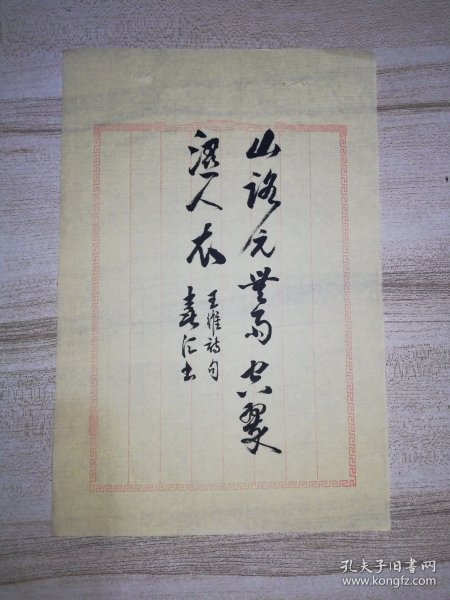 山路元无雨空翠
湿人衣
王维诗句
春江书
孔夫子旧书网
www.kongfz.com